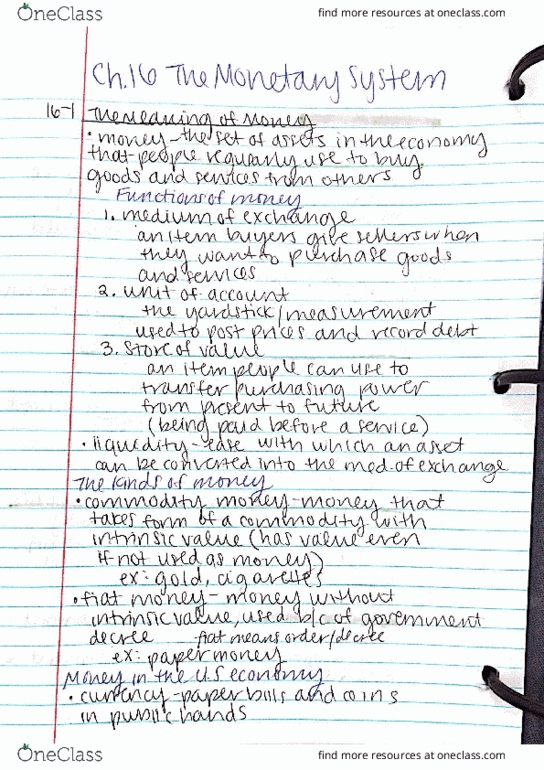 OneClass
find more resources at oneclass.com
Ch.16 The Monetary System
16-1 The Meaning of Money
• money - the set of assets in the economy
that people regularly use to buy
goods and services from others
Functions of money
1. medium of exchange
an item buyers give sellers when
they want to purchase goods
and services
2. unit of account
the yardstick/measurement
used to post prices and record debt
3. Store of value
an item people can use to
transfer purchasing power
from present to future
(being paid before a service)
• liquidity - ease with which an asset
can be converted into the med. of exchange
The kinds of money
• commodity money - money that
takes form of a commodity with
intrinsic value (has value even
if not used as money)
ex: gold, cigarettes
• fiat money - money without
intrinsic value, used b/c of government
decree fiat means order/decree
ex: paper money
Money in the US economy
• currency - paper bills and coins
in public hands
OneClass
find more resources at oneclass.com